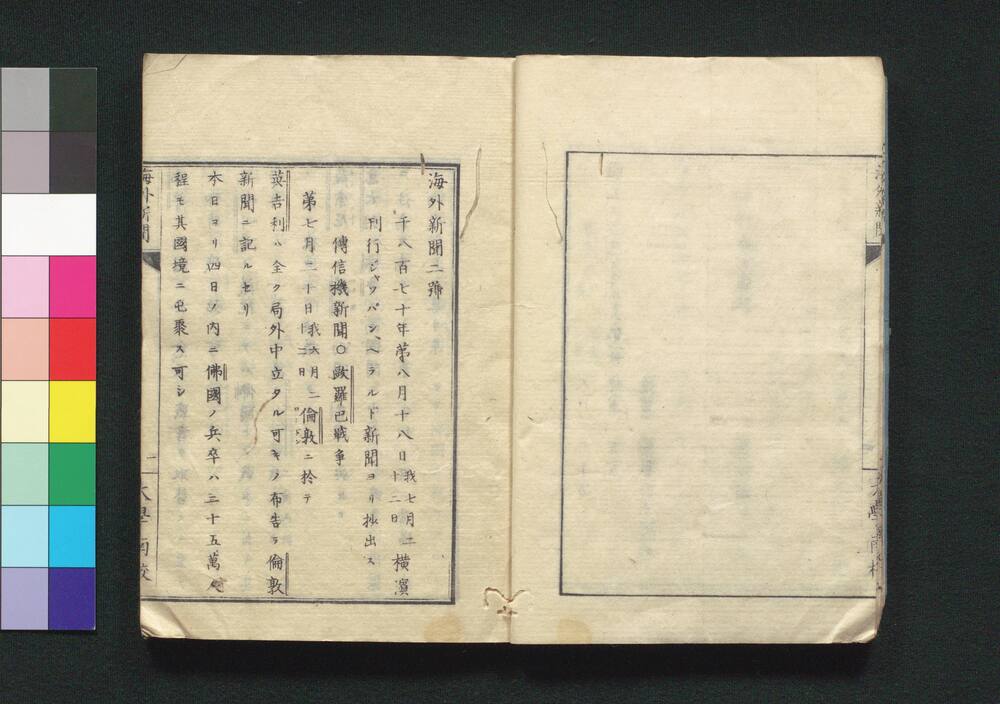 海外新聞二號
千八百七十年第八月十八日我七月二十二日横濱
刊行ジヤツパン、ヘラルド新聞ヨリ抄出ス
傳信機新聞○歐羅巴戰爭
第七月二十日我六月二十二日倫敦ニ於テ
英吉利ハ全ク局外中立タル可キノ布告ヲ倫敦
新聞ニ記ルセリ
本日ヨリ四日ノ内ニ佛國ノ兵卒ハ三十五萬人
程モ其國境ニ屯聚ス可シ
海外新聞
二
大學南校